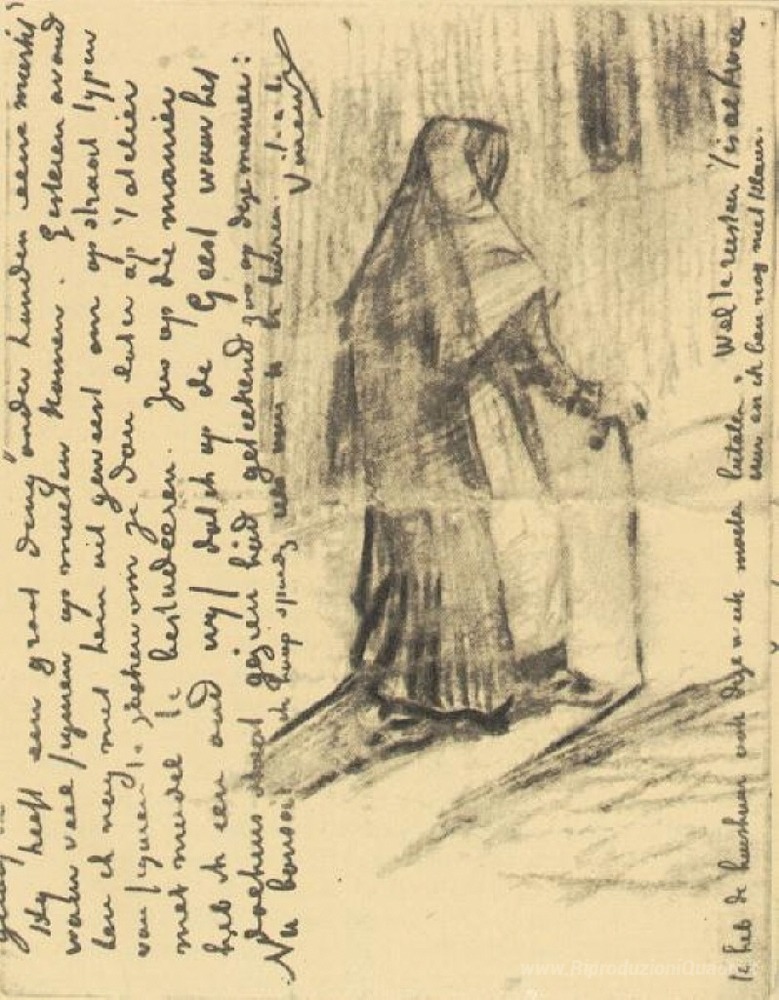 Hij heeft een groot ding onder handen eene
waar veel figuren op moeten komen. Gisteren avond
ben ik nog met hem uit geweest om op straat typen
van figuren te zoeken om ze dan later op 't atelier
met model te bestudeeren. Zoo op die manier
heb ik een oud wijf dat ik op de Geest waar het
dolhuis staat gezien heb geteekend zoo op deze manier:
Nu bonsoir ik hoop spoedig iets van U te hooren. t. à t.
Vincent
Ik heb de huishuur ook deze week moeten betalen. Wel te rusten 't is al twee
uur en ik ben nog niet klaar.
www.RiproduzioniQuadri